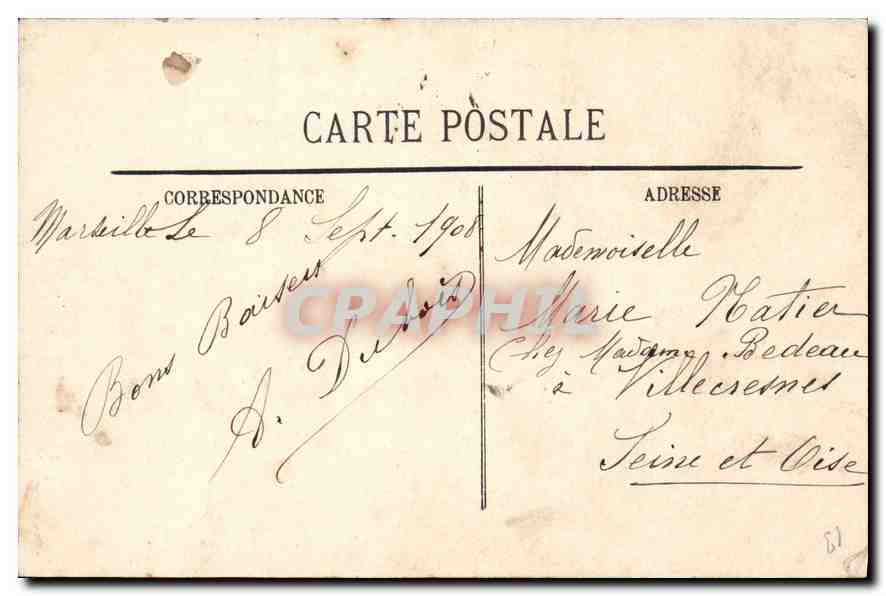 CARTE POSTALE
CORRESPONDANCE
Marseille Le 8 Sept. 1908
Bons Baisers
A. Dubois
ADRESSE
Mademoiselle
Marie Natier
Chez Madame Bedeau
à Villecresnes
Seine et Oise
CPAPHIL